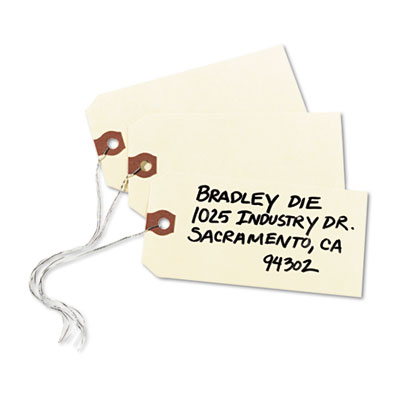 BRADLEY DIE
1025 INDUSTRY DR.
SACRAMENTO, CA
94302